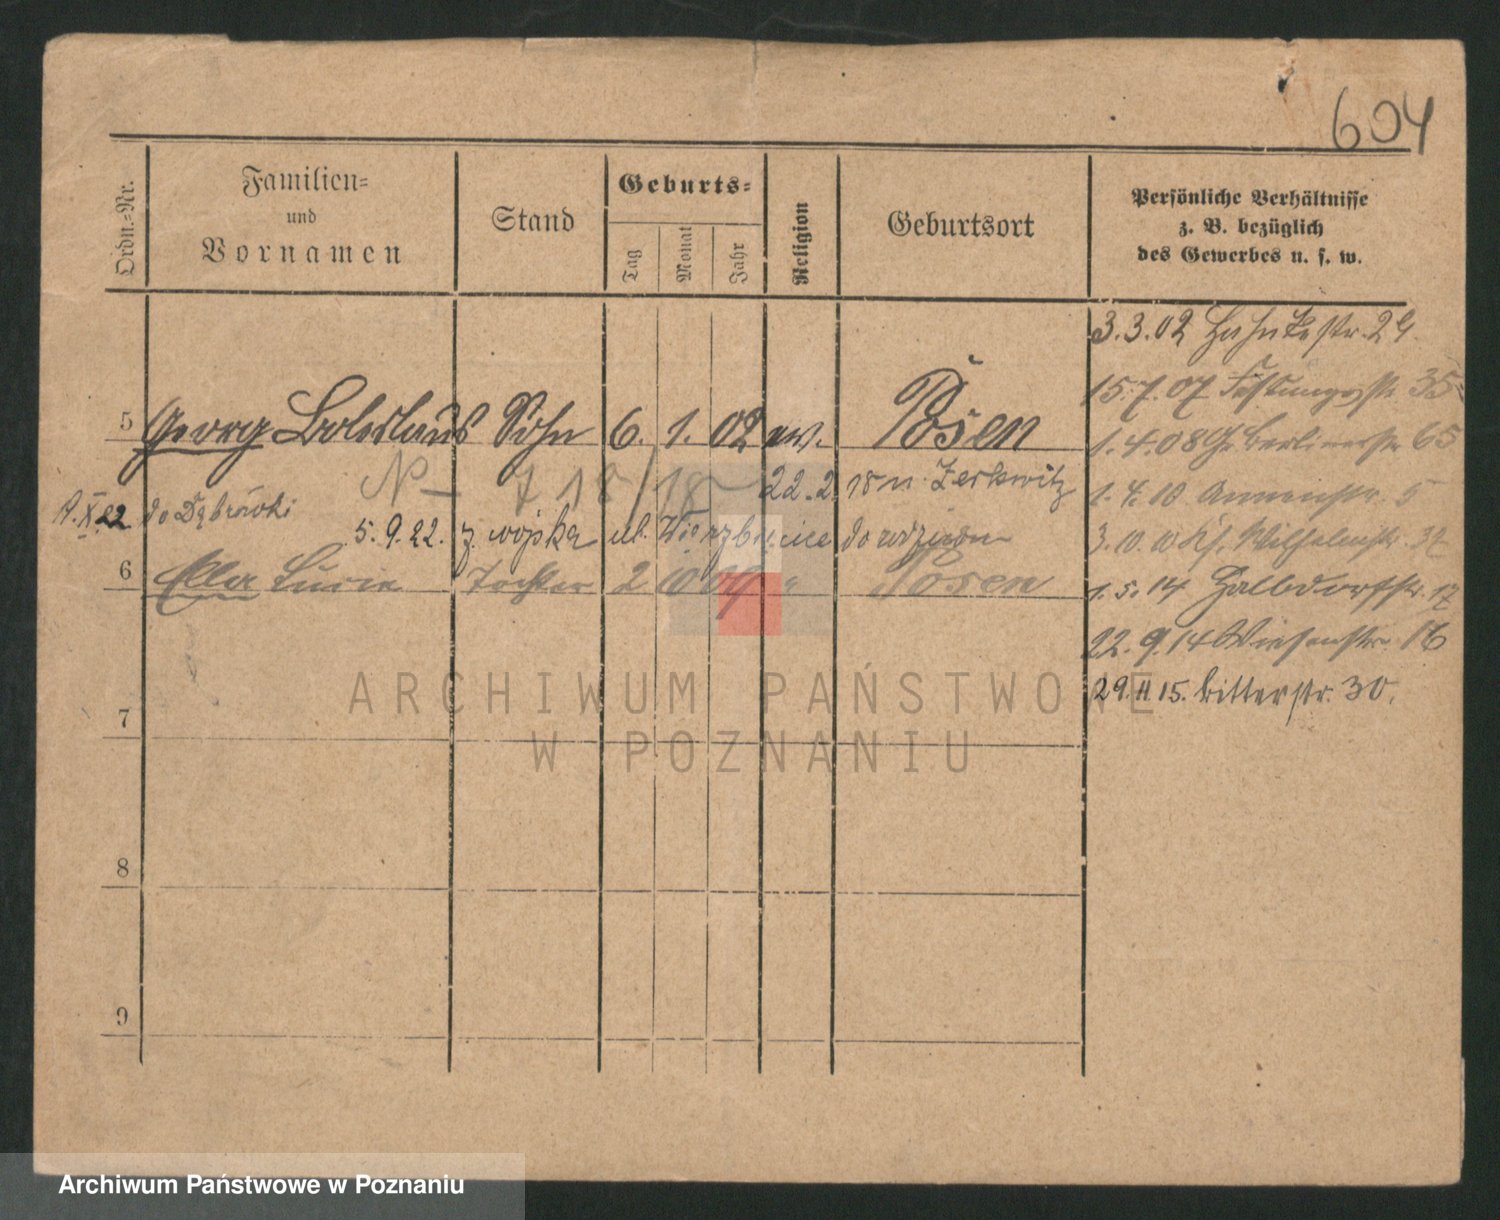 604
Ordn.-Nr.
Familien-
und
Vornamen
Stand
Geburts-
Tag
Monat
Jahr
Religion
Geburtsort
Persönliche Verhältnisse
z. B. bezüglich
des Gewerbes u. s. w.
3.3.02 str. 29.
15.7.07 Festungsstr. 35
5 Georg Boleslaus Sohn 6. 1. 02 ev. Posen
1.4.08 Gr. Berlinerstr. 65
22.2.18 n. Zerkwitz
1.4.10 Annenstr. 5
X 22 do Dąbrówki
5.9.22. z wojska ul. Wierzbięcice do
3.10.10 Ks. Wilhelmstr. 32
6 Ella Lucie Tochter 2 10 09 " Posen
1.5.14 Halbdorfstr. 17
22.9.14 Wiesenstr. 16
29.11.15. Ritterstr. 30.
7
8
9
ARCHIWUM PAŃSTWOWE
W POZNANIU
Archiwum Państwowe w Poznaniu